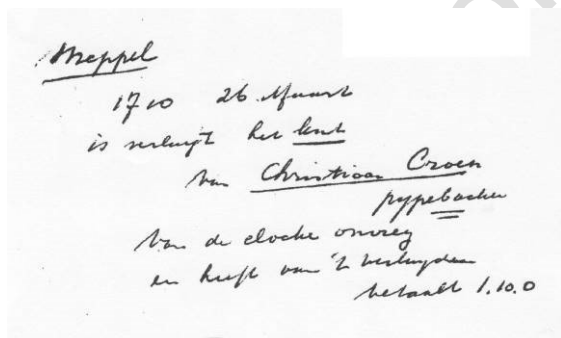 Meppel
1710 26 Maart
is verluijt het kint
van Christiaan Croes
pypebacker
van de clocke
en heeft van 't verluyden
betaalt 1.10.0